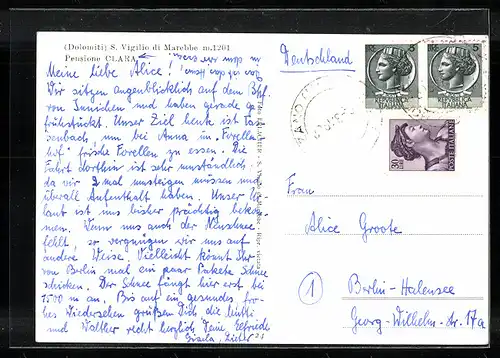 (Dolomiti) S. Vigilio di Marebbe m.1201
Pensione CLARA
Meine liebe Alice!
Wir sitzen augenblicklich auf dem Bhf.
von Innichen und haben gerade ge-
frühstückt. Unser Ziel heute ist Tas-
senbach, um bei Anna im "Forellen-
hof" frische Forellen zu essen. Die
Fahrt dorthin ist sehr umständlich
da wir 2 mal umsteigen müssen und
überall Aufenthalt haben. Unser Ur-
laub ist uns bisher prächtig bekom-
men. Wenn uns auch der
fehlt, so vergnügen wir uns auf
andere Weise. Vielleicht könnt Ihr
von Berlin mal ein paar Pakete Schnee
schicken. Der Schnee fängt hier erst bei
1500 m an. Bis auf ein gesundes fro-
hes Wiedersehen grüßen Dich die Mutti
und Walther recht herzlich Deine Elfriede
Gisela,
Deutschland
5
5
POSTE ITALIANE
30
Frau
Alice Groote
1
Berlin-Halensee
Georg-Wilhelm-Str. 17a